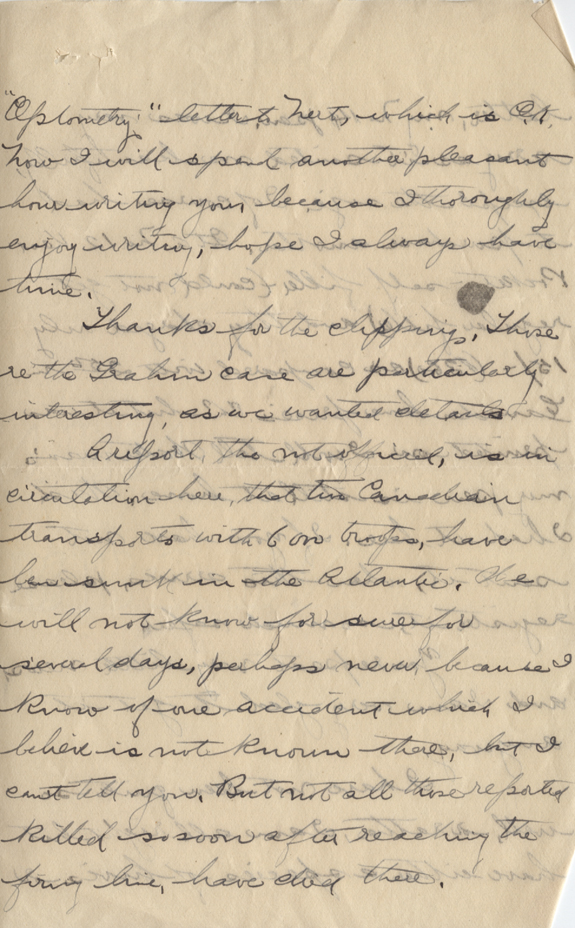 "Optometry" letter to Nert, which is O.K.
Now I will spend another pleasant
hour writing you, because I thoroughly
enjoy writing, hope I always have
time.
Thanks for the clippings, Those
re the Graham case are particularly
interesting, as we wanted details
A report, tho not official, is in
circulation here, that two Canadian
transports with 6 on troops, have
ben sunk in the Atlantic. We
will not know for sure for
several days, perhaps never, because I
know of one accident which I
believe is not known there, but I
cant tell you. But not all those reported
killed so soon after reaching the
firing line, have died there.